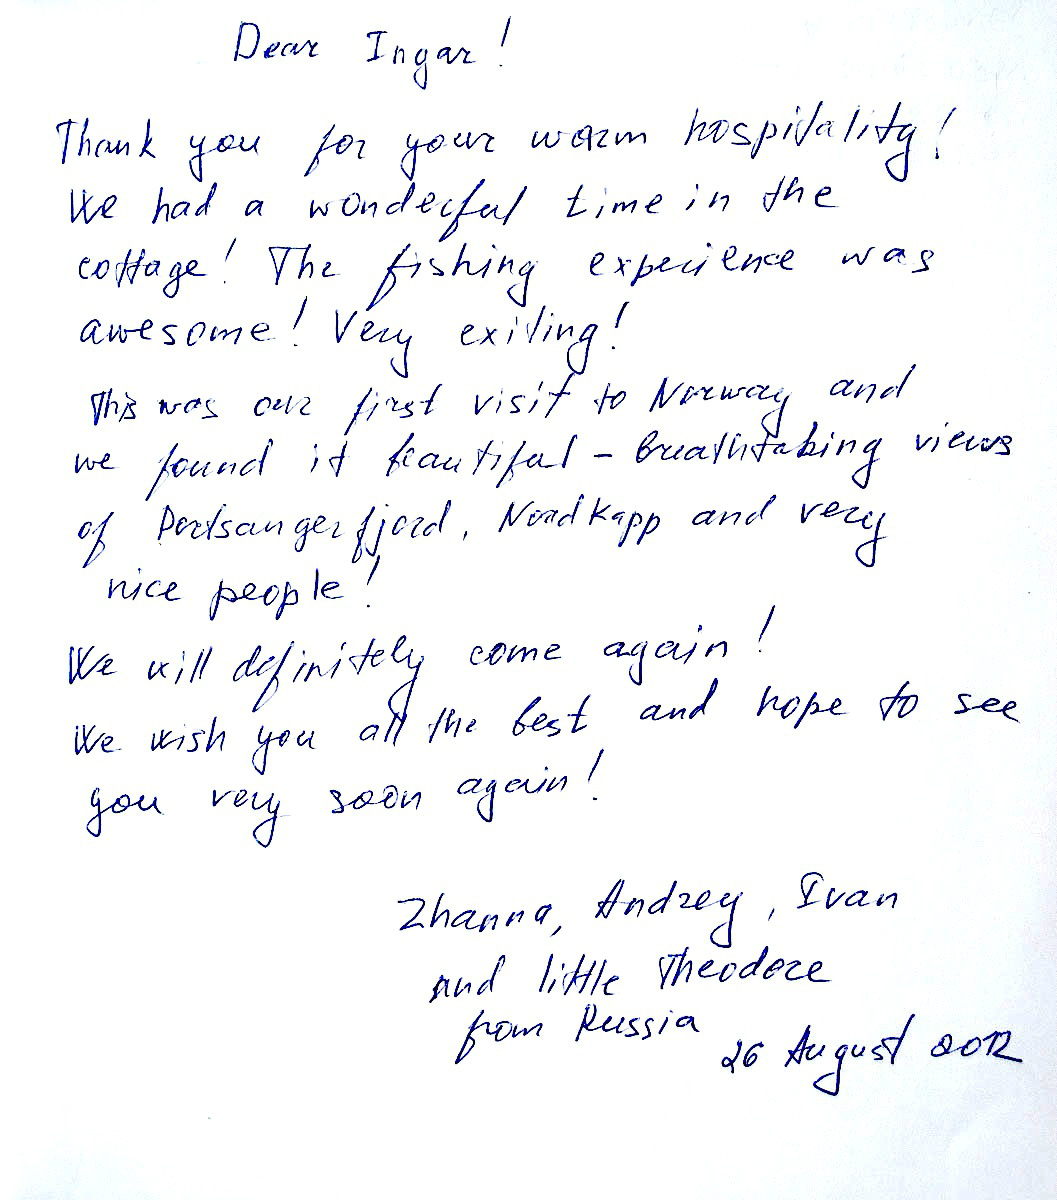 Dear Ingar!
Thank you for your warm hospitality!
We had a wonderful time in the
cottage! The fishing experience was
awesome! Very exiting!
This was our first visit to Norway and
we found it beautiful - breathtaking views
of Portsangerfjord, Nordkapp and very
nice people!
We will definitely come again!
We wish you all the best and hope to see
you very soon again!
Zhanna, Andrey, Ivan
and little Theodore
from Russia
26 August 2012